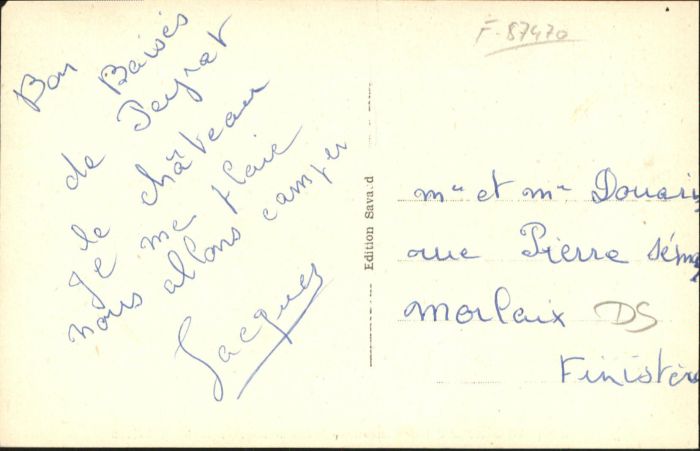 Bon Baisés
de Peyrat
le château
Je me plaie
nous allons camper
Jacques
Edition Savard
F-87470
mr et me Douari
rue Pierre Sém
Morlaix DS
Finistère